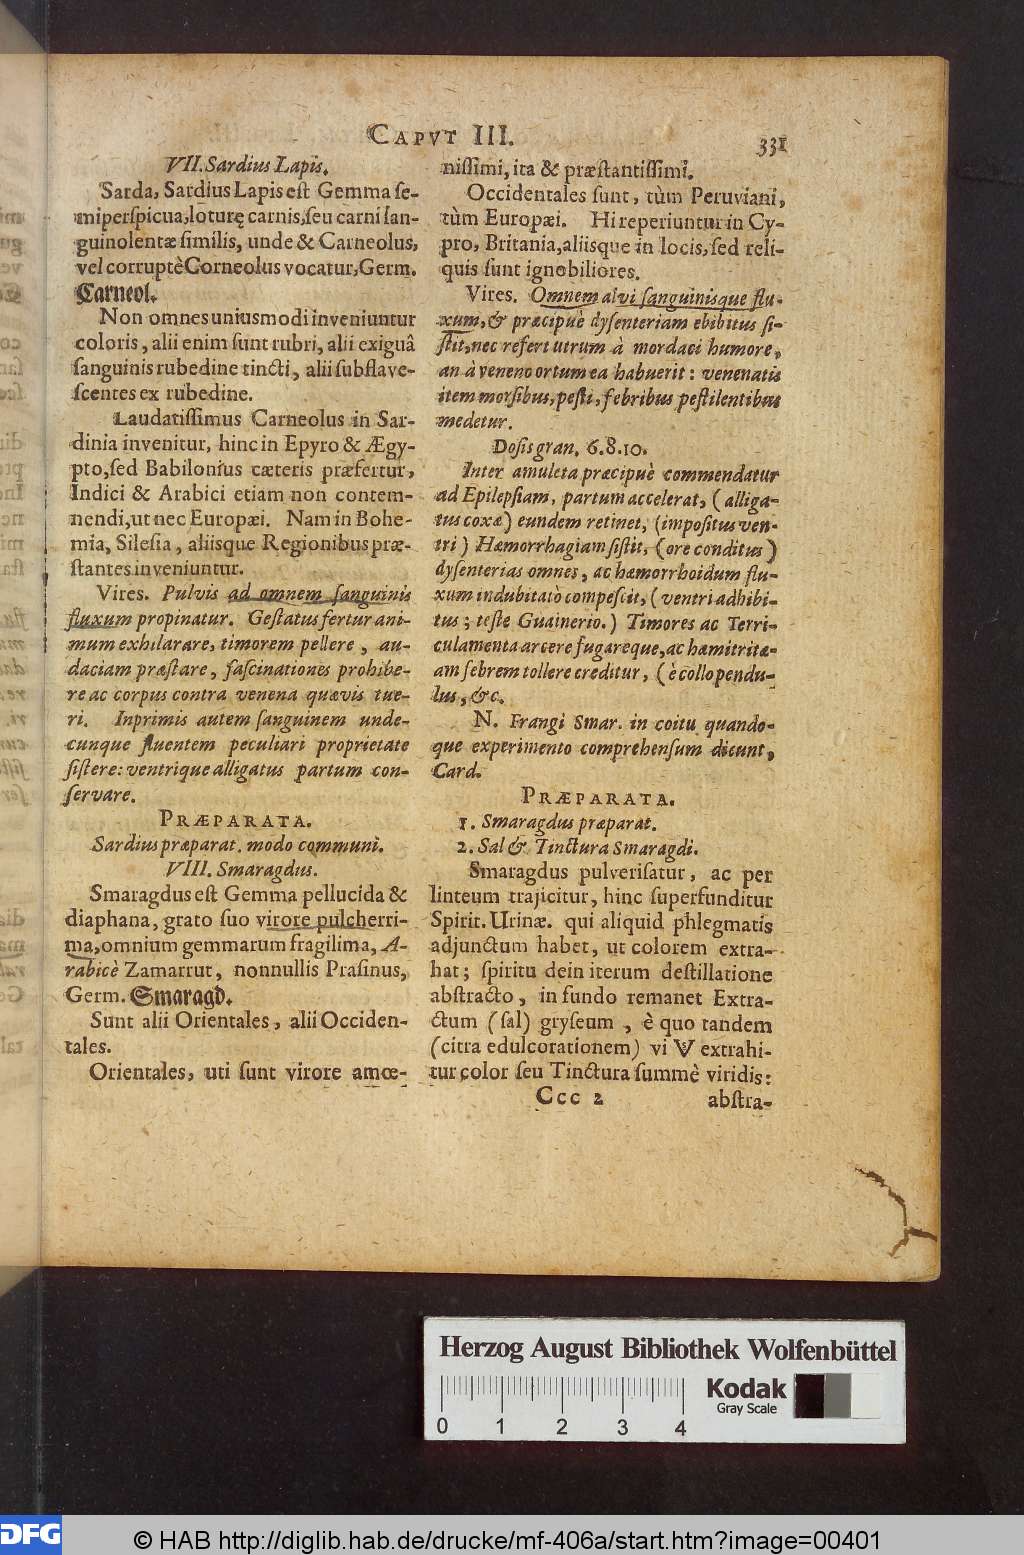 CAPVT III.
331
VII. Sardius Lapis.
Sarda, Sardius Lapis est Gemma se-
miperspicua, loturę carnis, seu carni san-
guinolentæ similis, unde & Carneolus,
vel corruptè Corneolus vocatur, Germ.
Carneol.
Non omnes uniusmodi inveniuntur
coloris, alii enim sunt rubri, alii exiguâ
sanguinis rubedine tincti, alii subflave-
scentes ex rubedine.
Laudatissimus Carneolus in Sar-
dinia invenitur, hinc in Epyro & Ægy-
pto, sed Babilonius cæteris præfertur,
Indici & Arabici etiam non contem-
nendi, ut nec Europæi. Nam in Bohe-
mia, Silesia, aliisque Regionibus præ-
stantes inveniuntur.
Vires. Pulvis ad omnem sanguinis
fluxum propinatur. Gestatus fertur ani-
mum exhilarare, timorem pellere, au-
daciam præstare, fascinationes prohibe-
re ac corpus contra venena quævis tue-
ri. Inprimis autem sanguinem unde-
cunque fluentem peculiari proprietate
sistere: ventrique alligatus partum con-
servare.
PRÆPARATA.
Sardius præparat. modo communi.
VIII. Smaragdus.
Smaragdus est Gemma pellucida &
diaphana, grato suo virore pulcherri-
ma, omnium gemmarum fragilima, A-
rabicè Zamarrut, nonnullis Prasinus,
Germ. Smaragd.
Sunt alii Orientales, alii Occiden-
tales.
Orientales, uti sunt virore amœ-
nissimi, ita & præstantissimi.
Occidentales sunt, tùm Peruviani,
tùm Europæi. Hi reperiuntur in Cy-
pro, Britania, aliisque in locis, sed reli-
quis sunt ignobiliores.
Vires. Omnem alvi sanguinisque flu-
xum, & præcipuè dysenteriam ebibitus si-
stit, nec refert utrum à mordaci humore,
an à veneno ortum ea habuerit: venenatis
item morsibus, pesti, febribus pestilentibus
medetur.
Dosis gran. 6. 8. 10.
Inter amuleta præcipuè commendatur
ad Epilepsiam, partum accelerat, (alliga-
tus coxæ) eundem retinet, (impositus ven-
tri) Hæmorrhagiam sistit, (ore conditus)
dysenterias omnes, ac hæmorrhoidum flu-
xum indubitatò compescit, (ventri adhibi-
tus; teste Guainerio.) Timores ac Terri-
culamenta arcere fugareque, ac hæmitritæ-
am febrem tollere creditur, (è collo pendu-
lus, &c.
N. Frangi Smar. in coitu quando-
que experimento comprehensum dicunt,
Card.
PRÆPARATA.
1. Smaragdus præparat.
2. Sal & Tinctura Smaragdi.
Smaragdus pulverisatur, ac per
linteum trajicitur, hinc superfunditur
Spirit. Urinæ. qui aliquid phlegmatis
adjunctum habet, ut colorem extra-
hat; spiritu dein iterum destillatione
abstracto, in fundo remanet Extra-
ctum (sal) gryseum, è quo tandem
(citra edulcorationem) vi V extrahi-
tur color seu Tinctura summè viridis:
Ccc 2 abstra-
Herzog August Bibliothek Wolfenbüttel
Kodak
Gray Scale
0 1 2 3 4
DFG © HAB http://diglib.hab.de/drucke/mf-406a/start.htm?image=00401